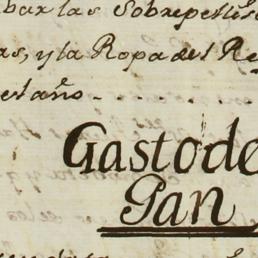 bar las Sobrepellis
as, y la Ropa del Re
el año
Gasto de
Pan